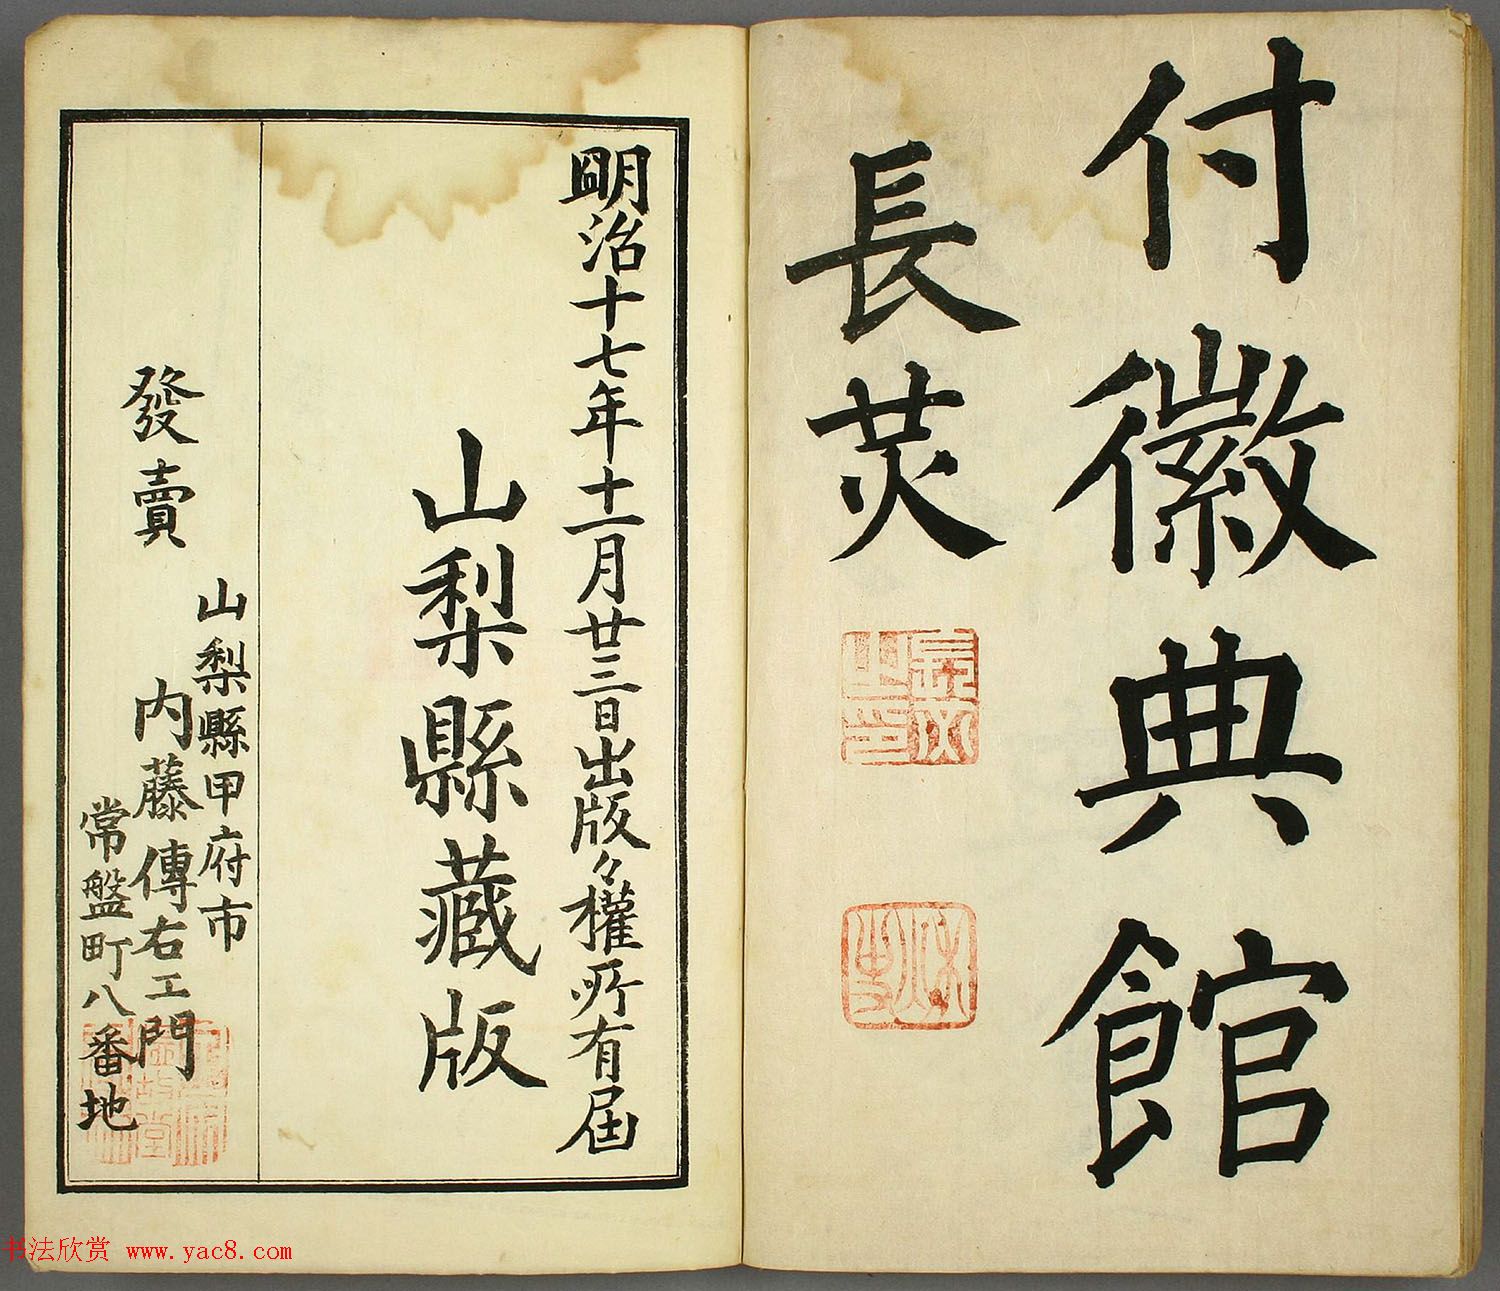 付徽典館
長炗
明治十七年十一月廿三日出版々權所有届
山梨縣藏版
發賣
山梨縣甲府市
内藤傳右エ門
常盤町八番地
书法欣赏 www.yac8.com